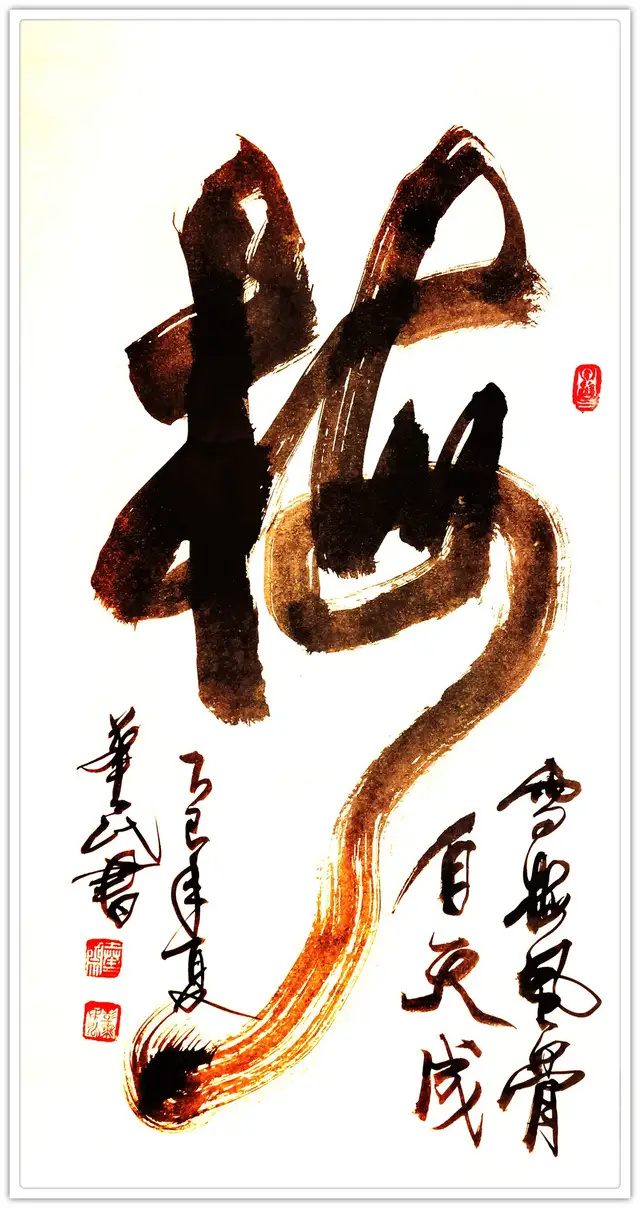 梅
雪梅風骨
自天成
乙巳年夏
華民書